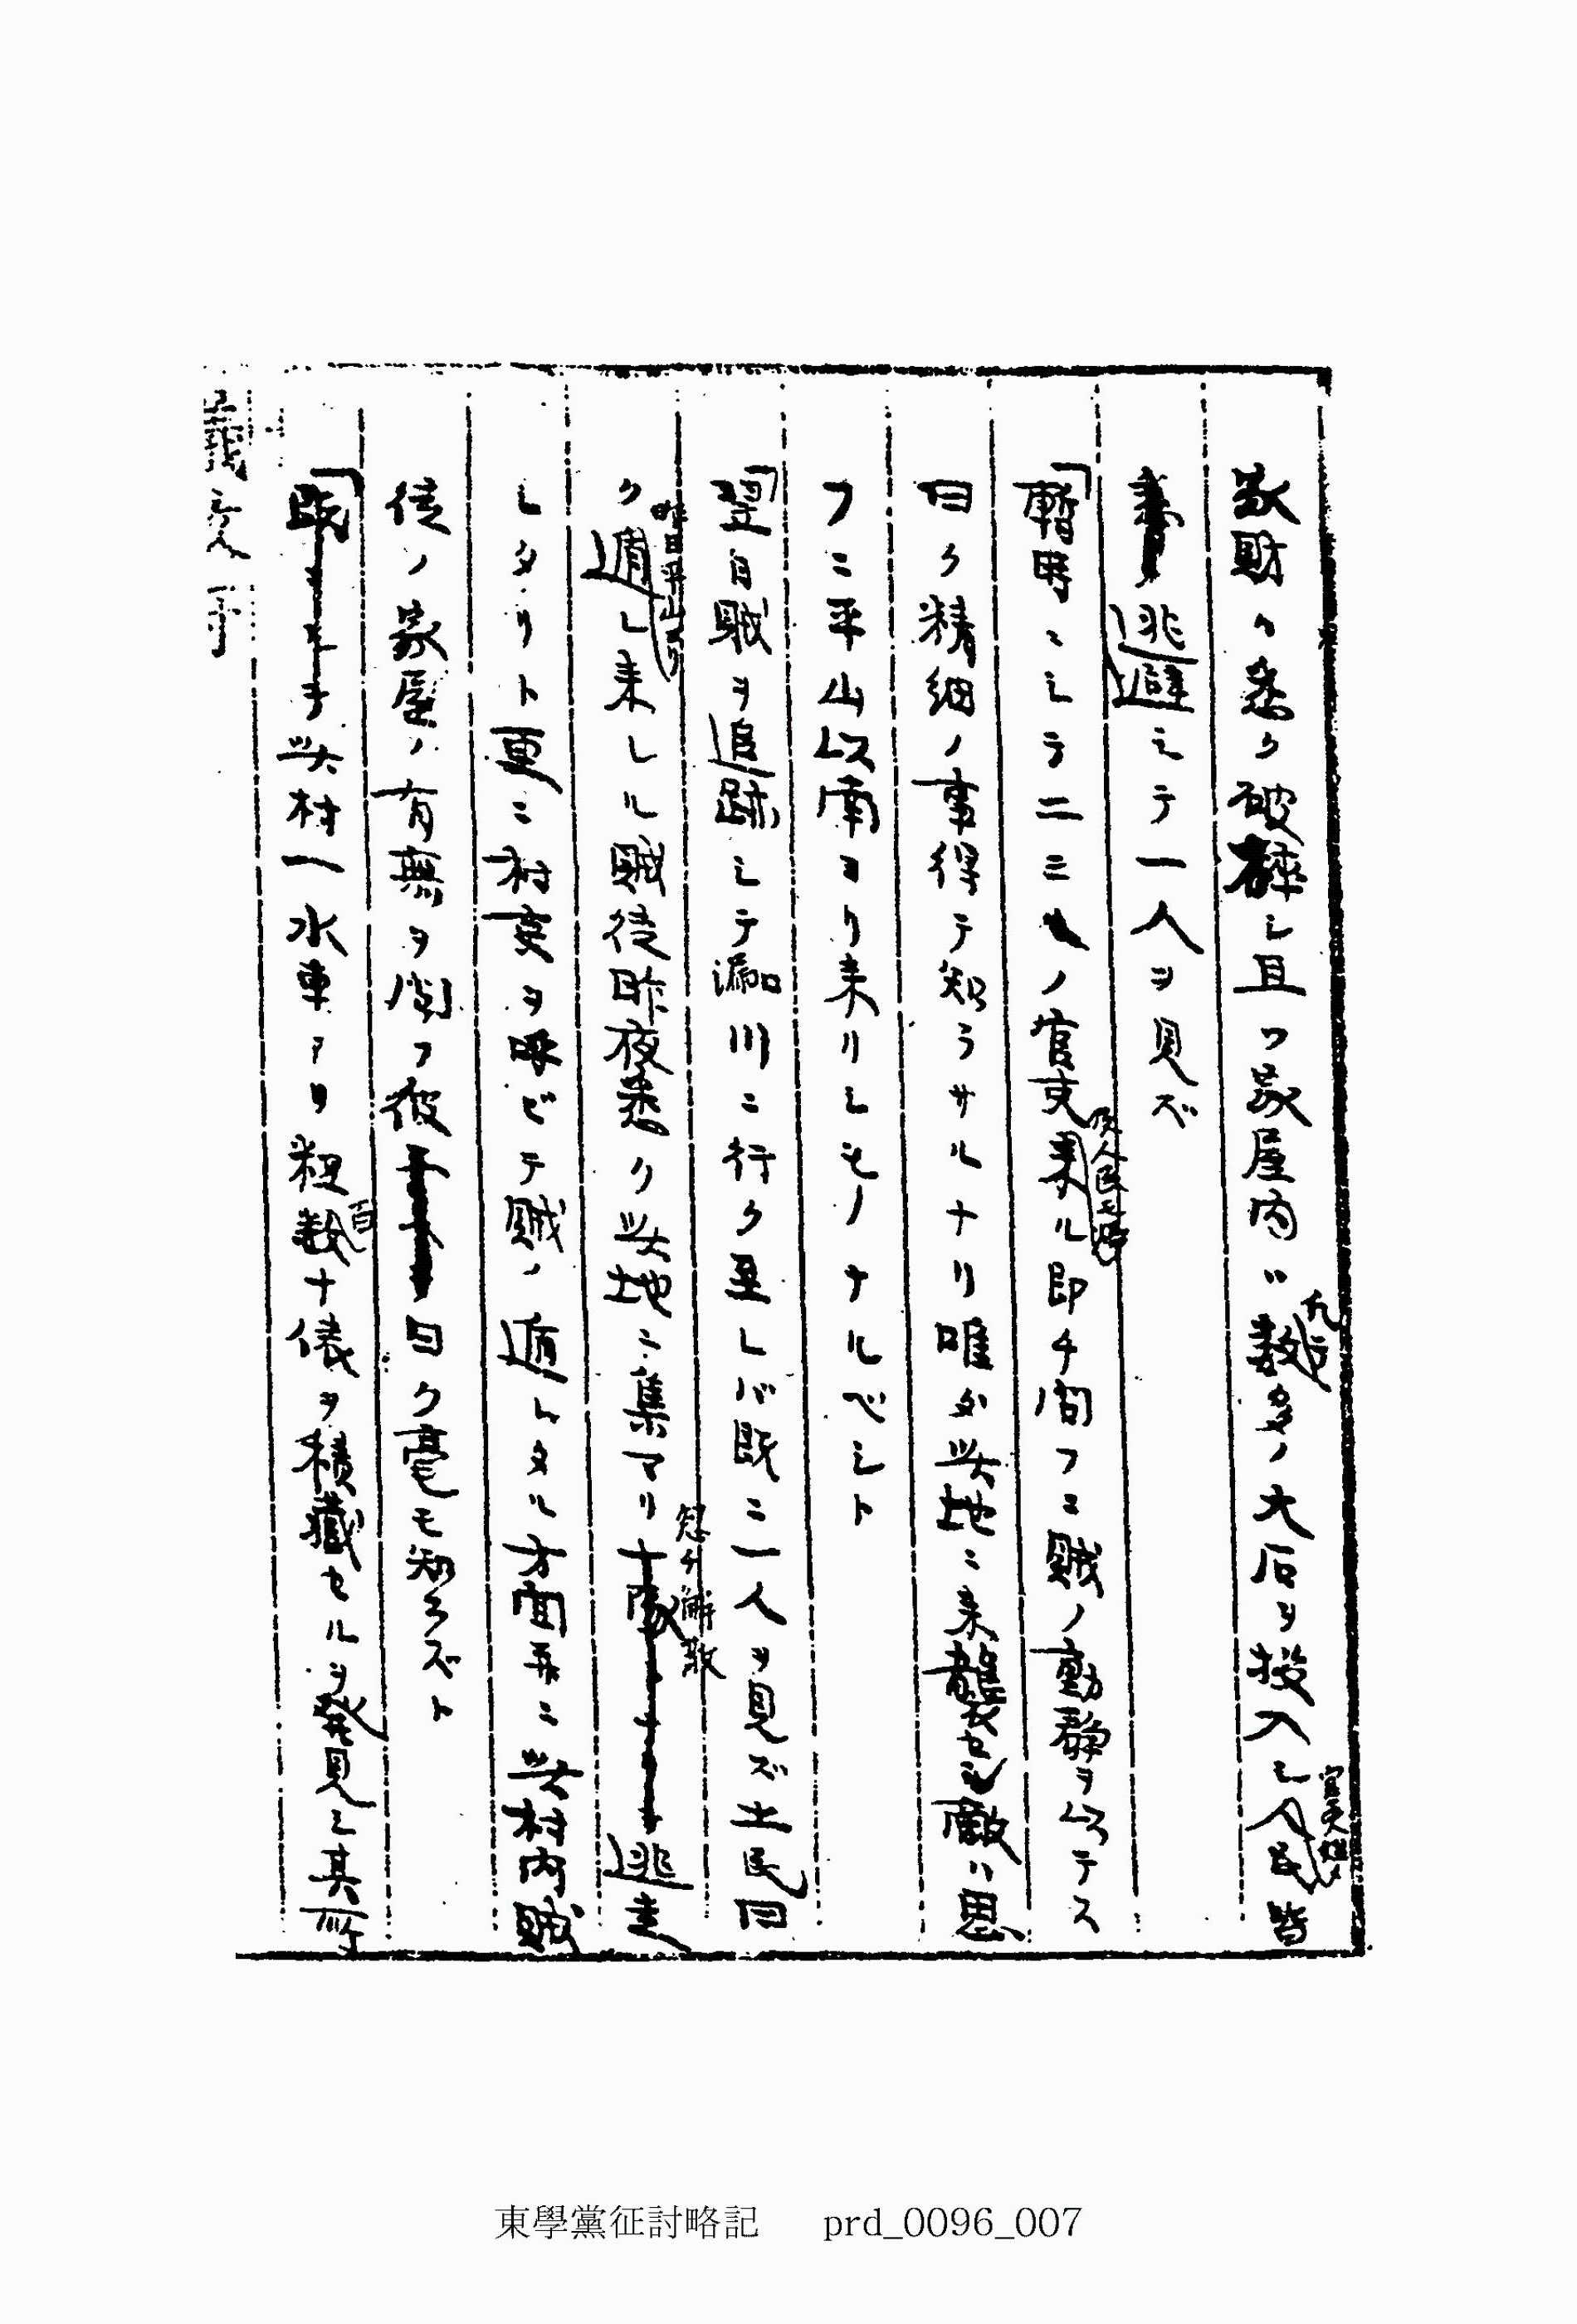 家財ハ悉ク破碎シ且ツ家屋内ニ數多ノ大石ヲ投入シ人民皆
逃避シテ一人ヲ見ズ
「暫時ニシテ二三ノ官吏來ル即チ問フニ賊ノ動静ヲ以テス
曰ク精細ノ事得テ知ラサルナリ唯ダ此地ニ来襲セシ敵ハ思
フニ平山以南ヨリ来リシモノナルベシト
「翌日賊ヲ追跡シテ漏川ニ行ク至レバ既ニ一人ヲ見ズ土民曰
ク遁レ来レル賊徒昨夜悉ク此地ニ集マリ忽チ解散逃走
レタリト更ニ村吏ヲ呼ビテ賊ノ遁レタル方面并ニ此村内賊
徒ノ家屋ノ有無ヲ問フ彼曰ク毫モ知ラズト
此村一水車アリ籾數百俵ヲ積藏セルヲ発見シ其所
東學黨征討略記 prd_0096_007